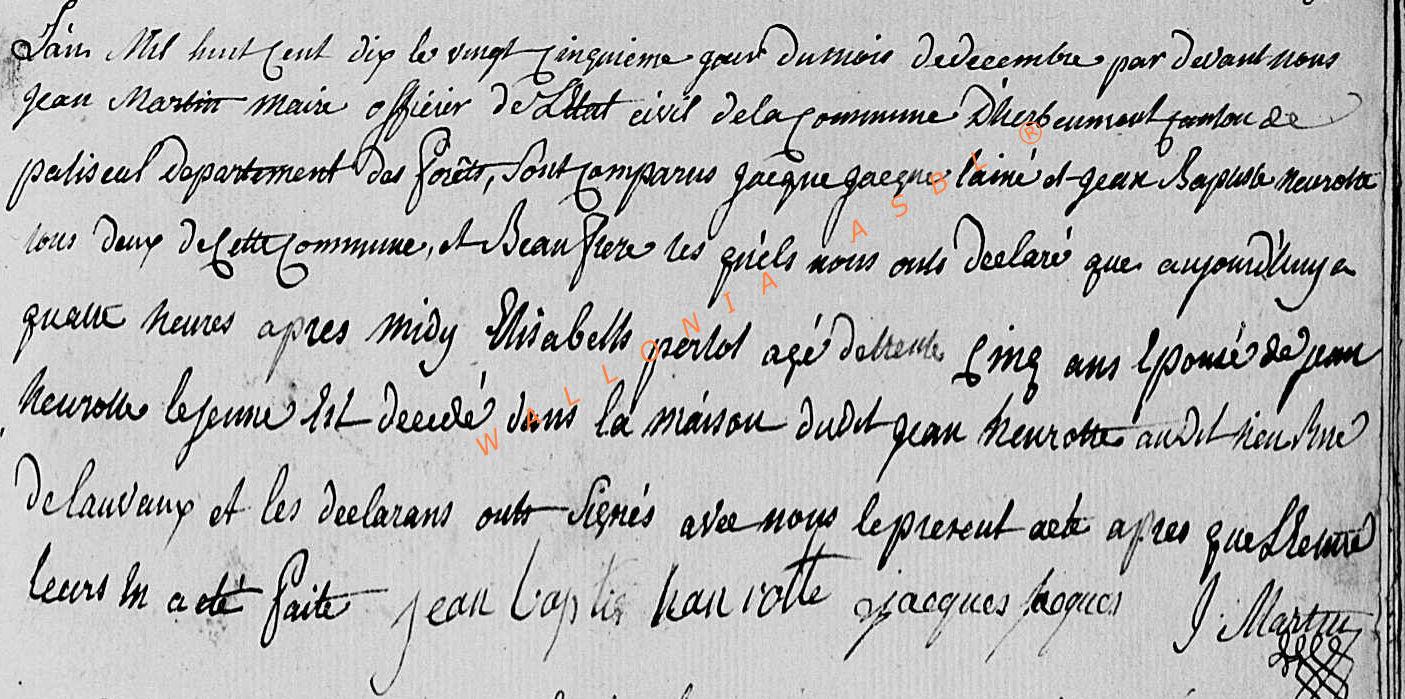 L'an Mil huit Cent dix le vingt Cinquieme jour du mois de decembre par devant nous
jean Martin maire officier de L'Etat civil de la Commune D'herbeumont Canton de
paliseul departement des forêts, Sont Comparus jacque jacque lainé et jean Baptiste heurotte
tous deux de Cette Commune, et Beau frere les quels nous onts declaré que aujourd'huy a
quatte heures apres midy Elisabeth perlot agé de trente Cinq ans Epouse de jean
heurotte le jeune Est decedé dans la maison dudit jean heurotte audit lieu Rue
de lauvaux et les declarans onts Signés avec nous le present acte apres que Lecture
leurs En a eté faite jean baptis hanrotte jacques jacques J. Martin
WALLONIA ASBL ®